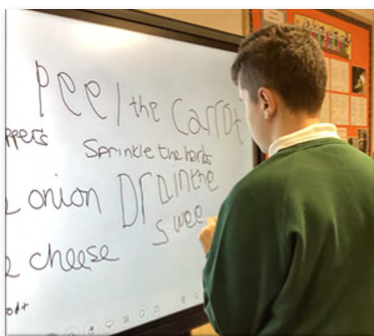 Peel the Carrot
ppers
Sprinkle the herbs
onion Drain the
swee
cheese